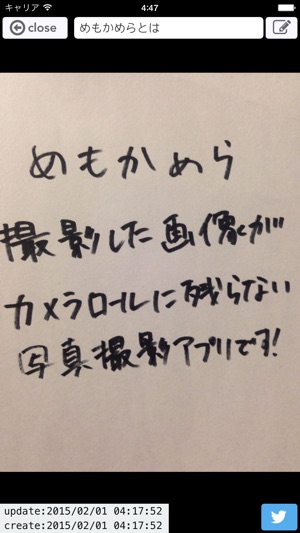 キャリア 4:47
close めもかめらとは
めもかめら
撮影した画像が
カメラロールに残らない
写真撮影アプリです!
update:2015/02/01 04:17:52
create:2015/02/01 04:17:52